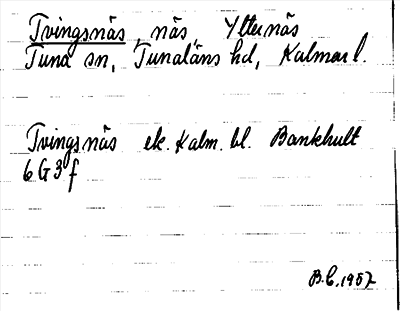 Tvingsnäs, näs, Ytternäs
Tuna sn, Tunaläns hd, Kalmar l.
Tvingsnäs ek. Kalm. bl. Bankhult
6G3f
B.C. 1957